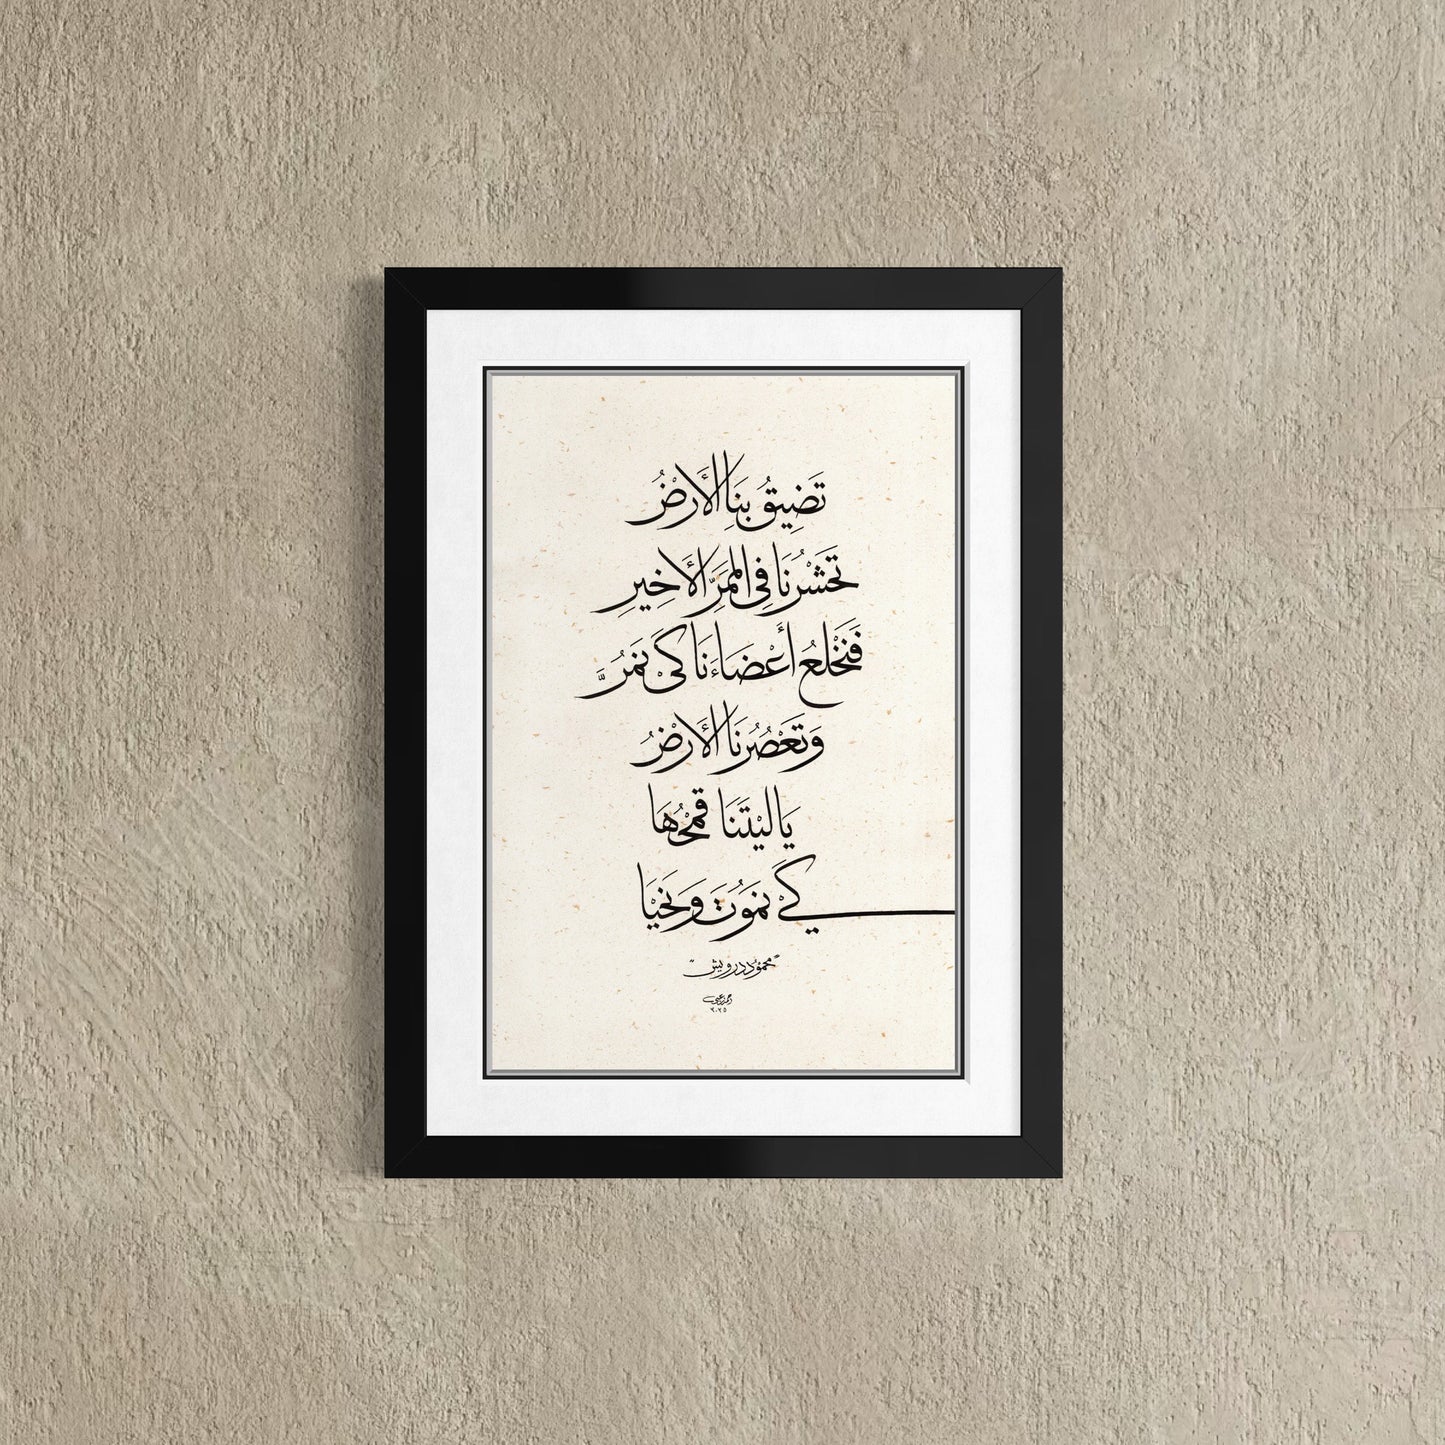 تَضِيقُ بِنَا الأَرْضُ
تَحْشُرُنَا فِي المَمَرِّ الأَخِيرِ
فَنَخْلَعُ أَعْضَاءَنَا كَيْ نَمُرَّ
وَتَعْصُرُنَا الأَرْضُ
يَا لَيْتَنَا قَمْحُهَا
كَيْ نَمُوتَ وَنَحْيَا
"محمود درويش"
٢٠٢٥